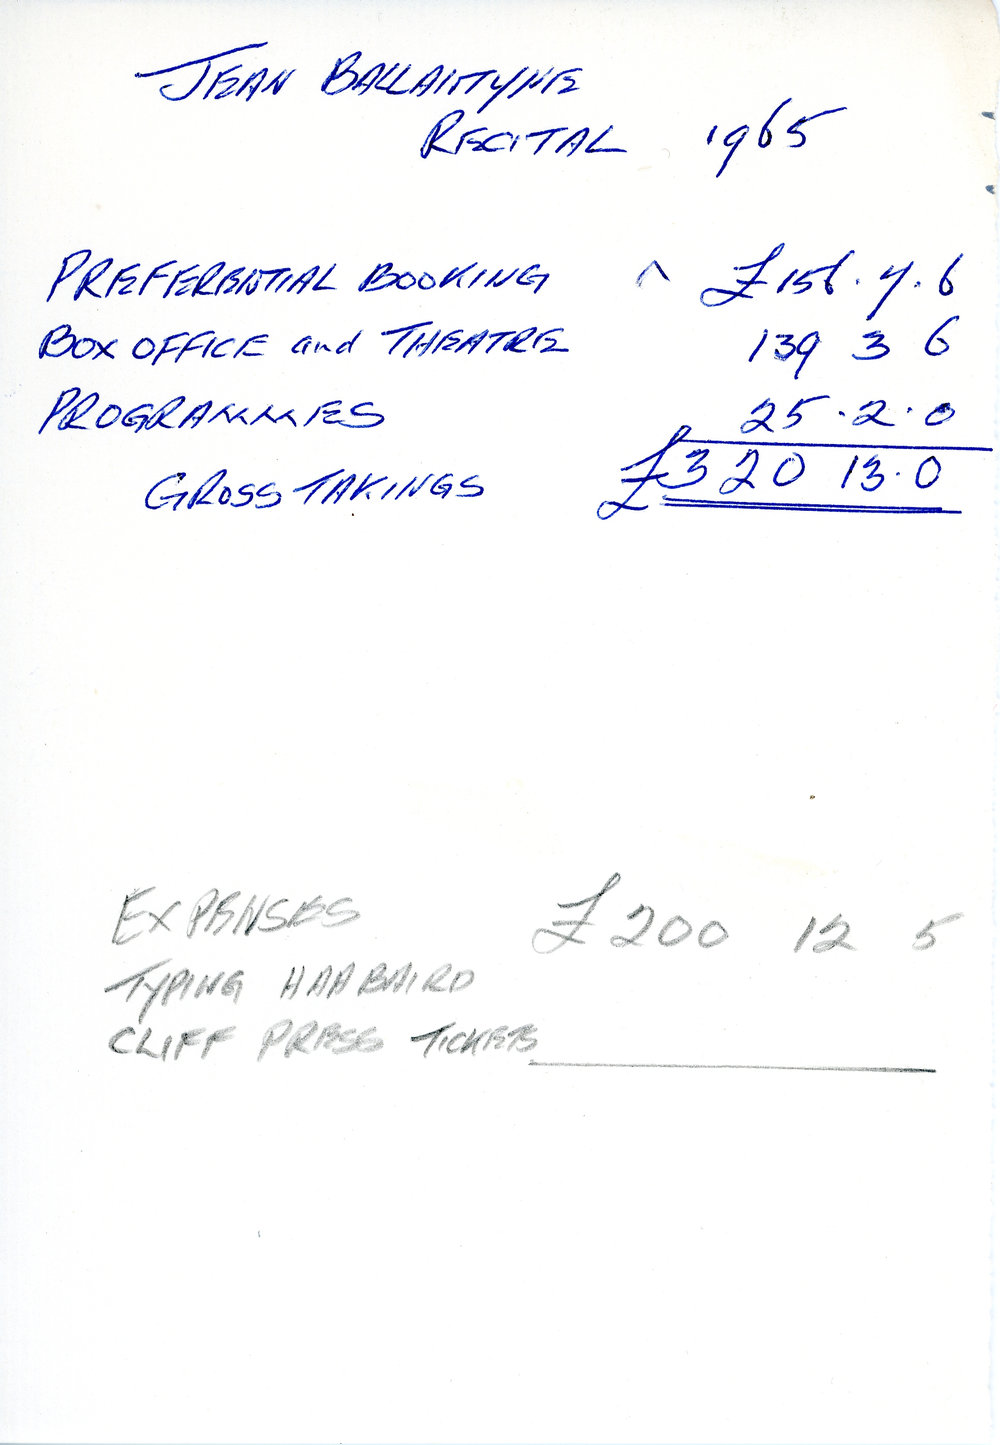 JEAN BALLANTYNE
RECITAL 1965
PREFERENTIAL BOOKING ^ £156.7.6
BOX OFFICE and THEATRE 139 3 6
PROGRAMMES 25.2.0
GROSS TAKINGS £320 13.0
EXPENSES £200 12 5
TYPING HAABAIRD
CLIFF PRESS TICKETS